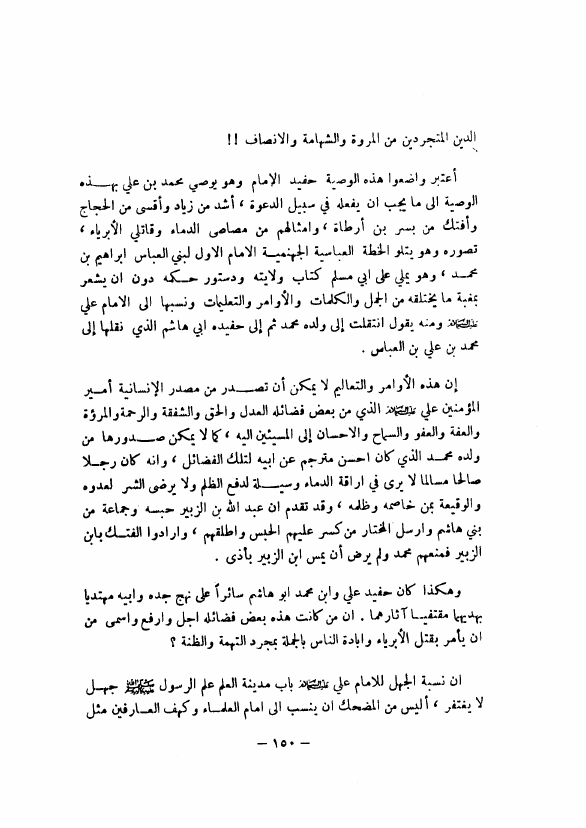 الدين المتجردين من المروة والشهامة والانصاف !!
أعتبر واضعوا هذه الوصية حفيد الإمام وهو يوصي محمد بن علي بهذه
الوصية الى ما يجب ان يفعله في سبيل الدعوة ، أشد من زياد وأقسى من الحجاج
وأفتك من بسر بن أرطاة ، وامثالهم من مصاصي الدماء وقاتلي الأبرياء ،
تصوره وهو يتلو الخطة العباسية الجهنمية الامام الاول لبني العباس ابراهيم بن
محمد ، وهو يملي على ابي مسلم كتاب ولايته ودستور حكمه دون ان يشعر
بمغبة ما يختلقه من الجمل والكلمات والأوامر والتعليمات ونسبها الى الامام علي
عليه السلام ومنه يقول انتقلت إلى ولده محمد ثم إلى حفيده ابي هاشم الذي نقلها إلى
محمد بن علي بن العباس .
إن هذه الأوامر والتعاليم لا يمكن أن تصدر من مصدر الإنسانية أمير
المؤمنين علي عليه السلام الذي من بعض فضائله العدل والحق والشفقة والرحمة والمرؤة
والعفة والعفو والسماح والاحسان إلى المسيئين اليه ، كما لا يمكن صدورها من
ولده محمد الذي كان احسن مترجم عن ابيه لتلك الفضائل ، وانه كان رجلا
صالحا مسالما لا يرى في اراقة الدماء وسيلة لدفع الظلم ولا يرضى الشر لعدوه
والوقيعة بمن خاصمه وظلمه ، وقد تقدم ان عبد الله بن الزبير حبسه وجماعة من
بني هاشم وارسل المختار من كسر عليهم الحبس واطلقهم ، وارادوا الفتك بابن
الزبير فمنعهم محمد ولم يرض أن يمس ابن الزبير بأذى .
وهكذا كان حفيد علي وابن محمد ابو هاشم سائراً على نهج جده وابيه مهتديا
بهديهما مقتفيا آثارهما . ان من كانت هذه بعض فضائله اجل وارفع واسمى من
ان يأمر بقتل الأبرياء وابادة الناس بالجملة بمجرد التهمة والظنة ؟
ان نسبة الجهل للامام علي عليه السلام باب مدينة العلم علم الرسول صلى الله عليه وآله وسلم جهل
لا يغتفر ، أليس من المضحك ان ينسب الى امام العلماء وكهف العارفين مثل
— ١٥٠ —